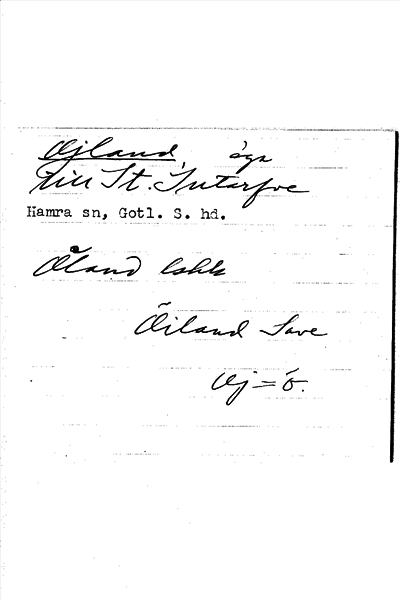 Ojland, äga
till St. Sutarfve
Hamra sn, Gotl. S. hd.
Öland lshk
Öiland Save
Oj = ö.